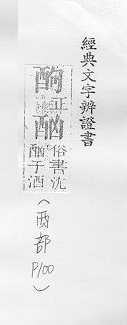 經典文字辨證書
正
俗書沈
于酒
(酉部 P100)